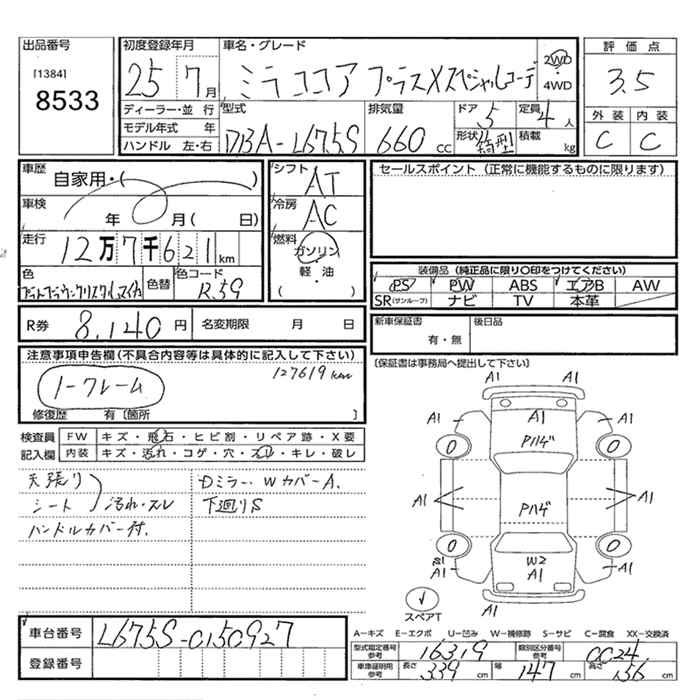 出品番号
[1384]
8533
初度登録年月
25 7月
車名・グレード
ミラココア プラスXスペシャルコーデ
2WD
・
4WD
評価点
3.5
外装 内装
C C
ディーラー・並行
モデル年式 年
ハンドル 左・右
型式
DBA-L675S
排気量
660 cc
ドア 5
形状 箱型
定員 4 人
積載 kg
車歴
自家用・( )
車検
年 月( 日)
走行
12万7千621km
色
色替
色コード
R59
シフト
AT
冷房
AC
燃料
ガソリン
・
軽・油
( )
セールスポイント(正常に機能するものに限ります)
装備品(純正品に限り○印をつけてください)
PS PW ABS エアB AW
SR(サンルーフ) ナビ TV 本革
R券 8,140円 名変期限 月 日
新車保証書
有・無
後日品
[保証書は事務局へ提出して下さい]
注意事項申告欄(不具合内容等は具体的に記入して下さい)
127619km
ノークレーム
修復歴 有[箇所 ]
検査員 FW キズ・飛石・ヒビ割・リペア跡・X要
記入欄 内装 キズ・汚れ・コゲ・穴・スレ・キレ・破レ
天張り
シート 汚れ・スレ
ハンドルカバー付.
Dミラー.WカバーA.
下廻りS
A1 A1
A1 A1 A1
Pハゲ
0 0
A1 A1
Pハゲ
0 0
W2
A1 A1 A1
スペアT
A-キズ E-エクボ U-凹み W-補修跡 S-サビ C-腐食 XX-交換済
車台番号 L675S-0150927
登録番号
型式指定番号
参考
16319
類別区分番号
参考
0024
車庫証明用
参考
長さ 339cm 幅 147cm 高さ 156cm